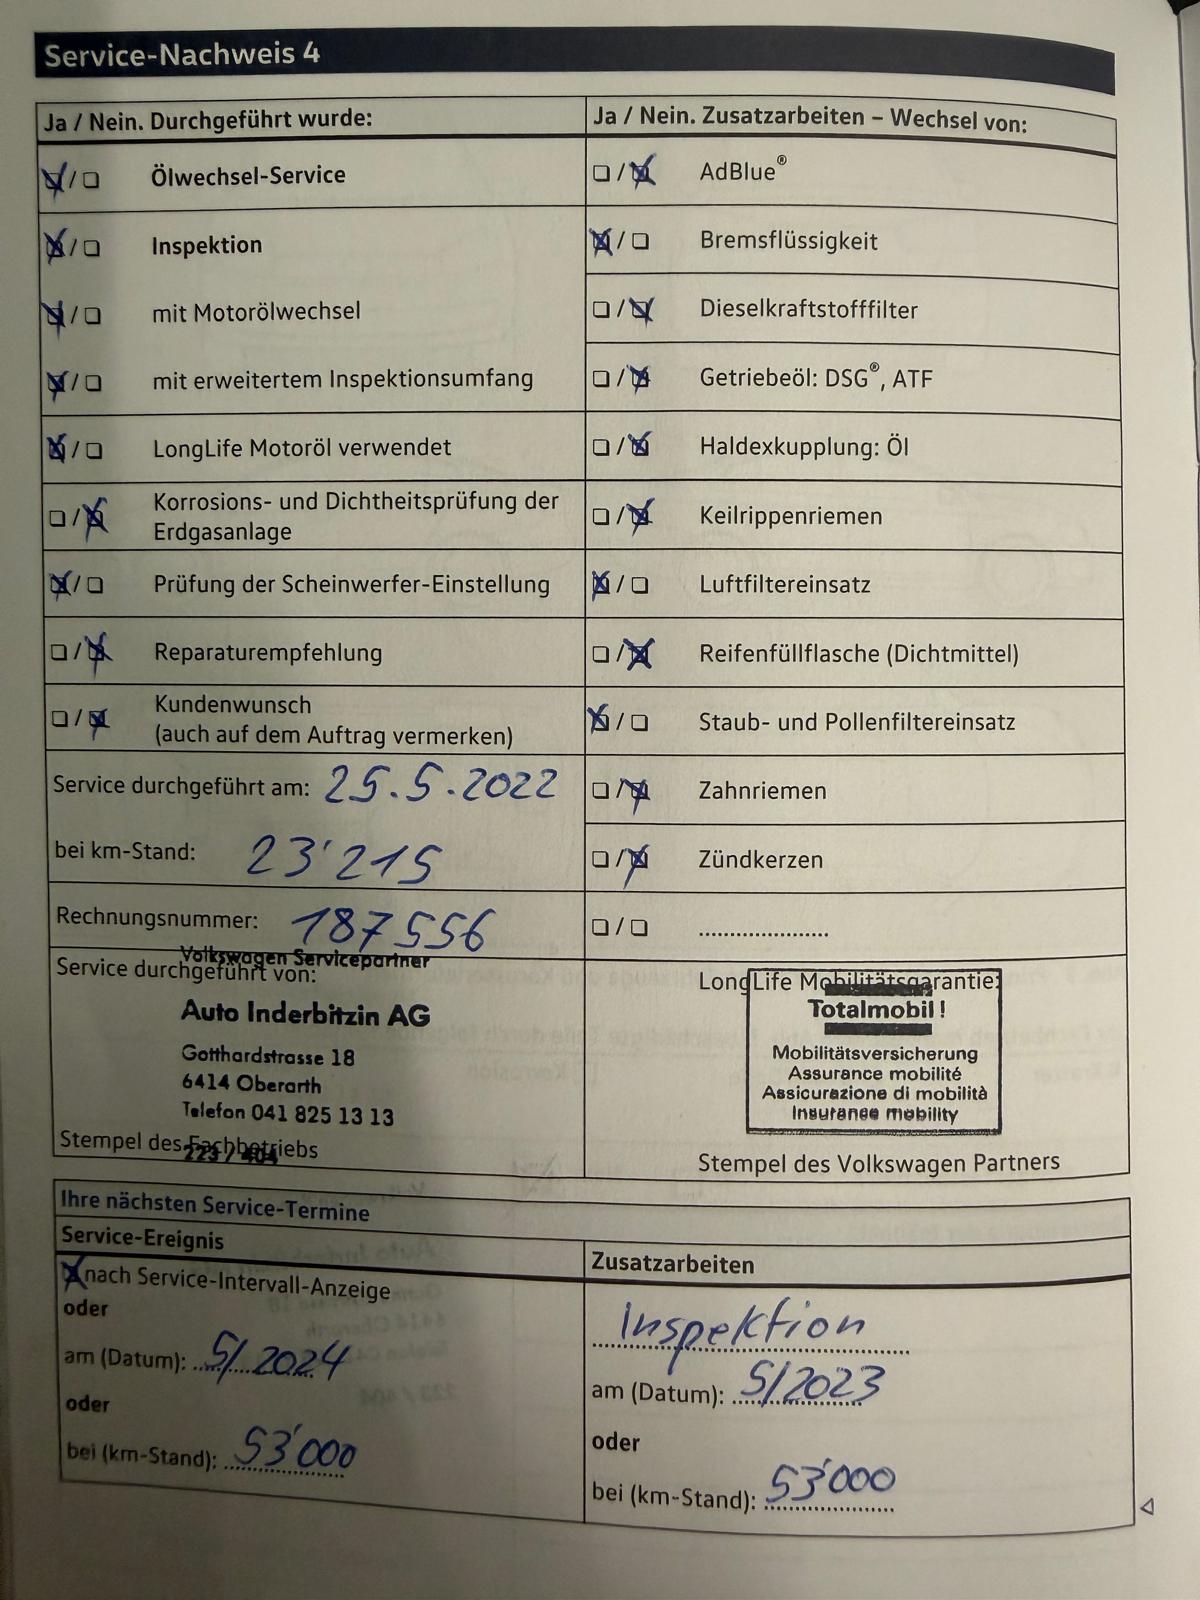 Service-Nachweis 4
Ja / Nein. Durchgeführt wurde:
☒ / ☐ Ölwechsel-Service
☒ / ☐ Inspektion
☒ / ☐ mit Motorölwechsel
☒ / ☐ mit erweitertem Inspektionsumfang
☒ / ☐ LongLife Motoröl verwendet
☐ / ☒ Korrosions- und Dichtheitsprüfung der
Erdgasanlage
☒ / ☐ Prüfung der Scheinwerfer-Einstellung
☐ / ☒ Reparaturempfehlung
☐ / ☒ Kundenwunsch
(auch auf dem Auftrag vermerken)
Service durchgeführt am: 25.5.2022
bei km-Stand: 23'215
Rechnungsnummer: 187556
Volkswagen Servicepartner
Service durchgeführt von:
Auto Inderbitzin AG
Gotthardstrasse 18
6414 Oberarth
Telefon 041 825 13 13
Stempel des Fachbetriebs
223 / 404
Ja / Nein. Zusatzarbeiten – Wechsel von:
☐ / ☒ AdBlue®
☒ / ☐ Bremsflüssigkeit
☐ / ☒ Dieselkraftstofffilter
☐ / ☒ Getriebeöl: DSG®, ATF
☐ / ☒ Haldexkupplung: Öl
☐ / ☒ Keilrippenriemen
☒ / ☐ Luftfiltereinsatz
☐ / ☒ Reifenfüllflasche (Dichtmittel)
☒ / ☐ Staub- und Pollenfiltereinsatz
☐ / ☒ Zahnriemen
☐ / ☒ Zündkerzen
☐ / ☐ ....................
LongLife Mobilitätsgarantie:
Totalmobil!
Mobilitätsversicherung
Assurance mobilité
Assicurazione di mobilità
Insurance mobility
Stempel des Volkswagen Partners
Ihre nächsten Service-Termine
Service-Ereignis
☒ nach Service-Intervall-Anzeige
oder
am (Datum): 5/2024
oder
bei (km-Stand): 53'000
Zusatzarbeiten
Inspektion
am (Datum): 5/2023
oder
bei (km-Stand): 53'000